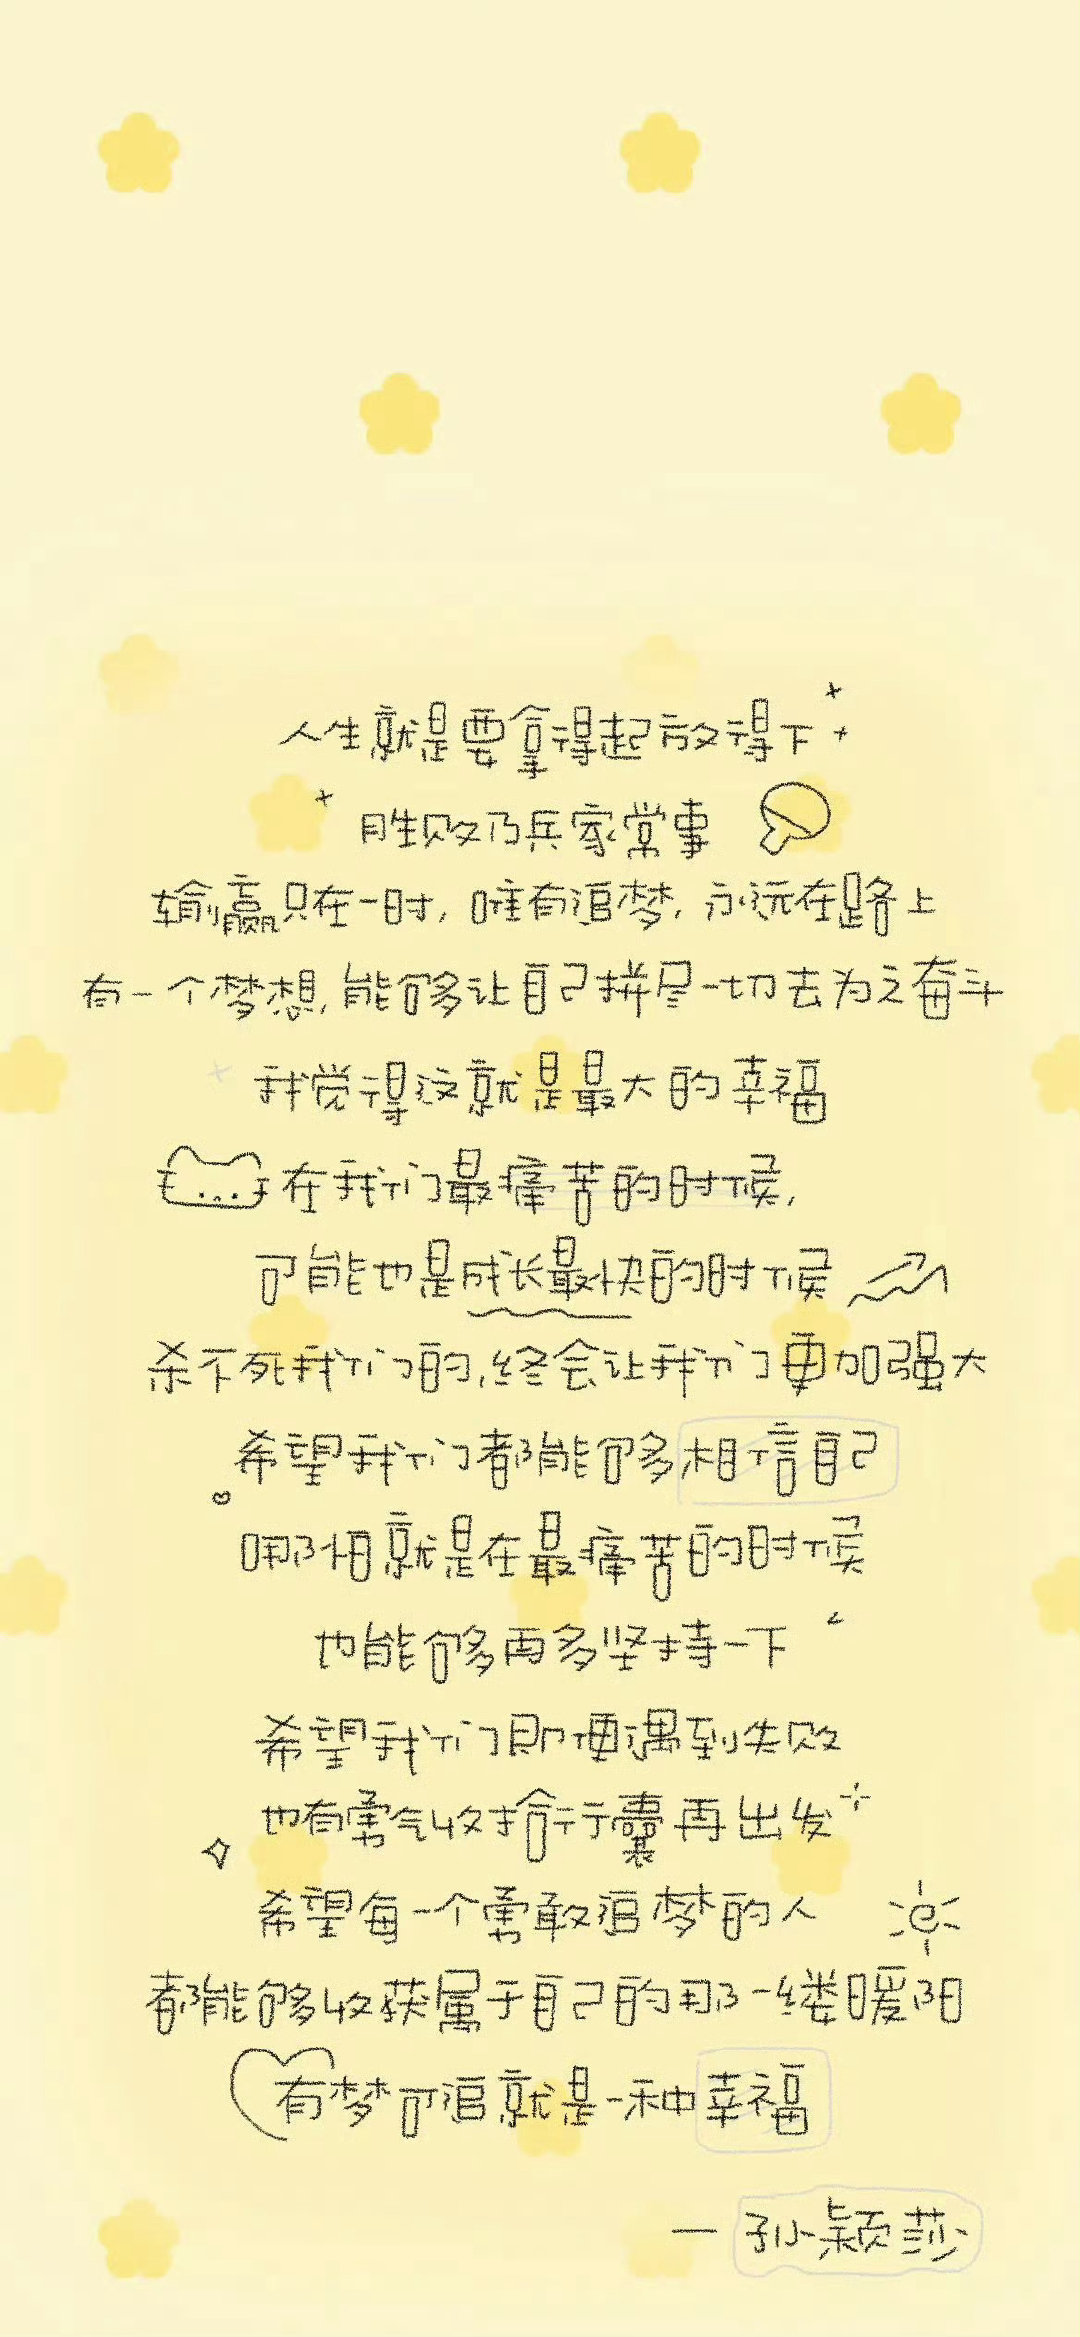 人生就是要拿得起放得下
胜败乃兵家常事
输赢只在一时,唯有追梦,永远在路上
有一个梦想,能够让自己拼尽一切去为之奋斗
我觉得这就是最大的幸福
在我们最痛苦的时候,
可能也是成长最快的时候
杀不死我们的,终会让我们更加强大
希望我们都能够相信自己
哪怕就是在最痛苦的时候
也能够再多坚持一下
希望我们即便遇到失败
也有勇气收拾行囊再出发
希望每一个勇敢追梦的人
都能够收获属于自己的那一缕暖阳
有梦可追就是一种幸福
— 孙颖莎